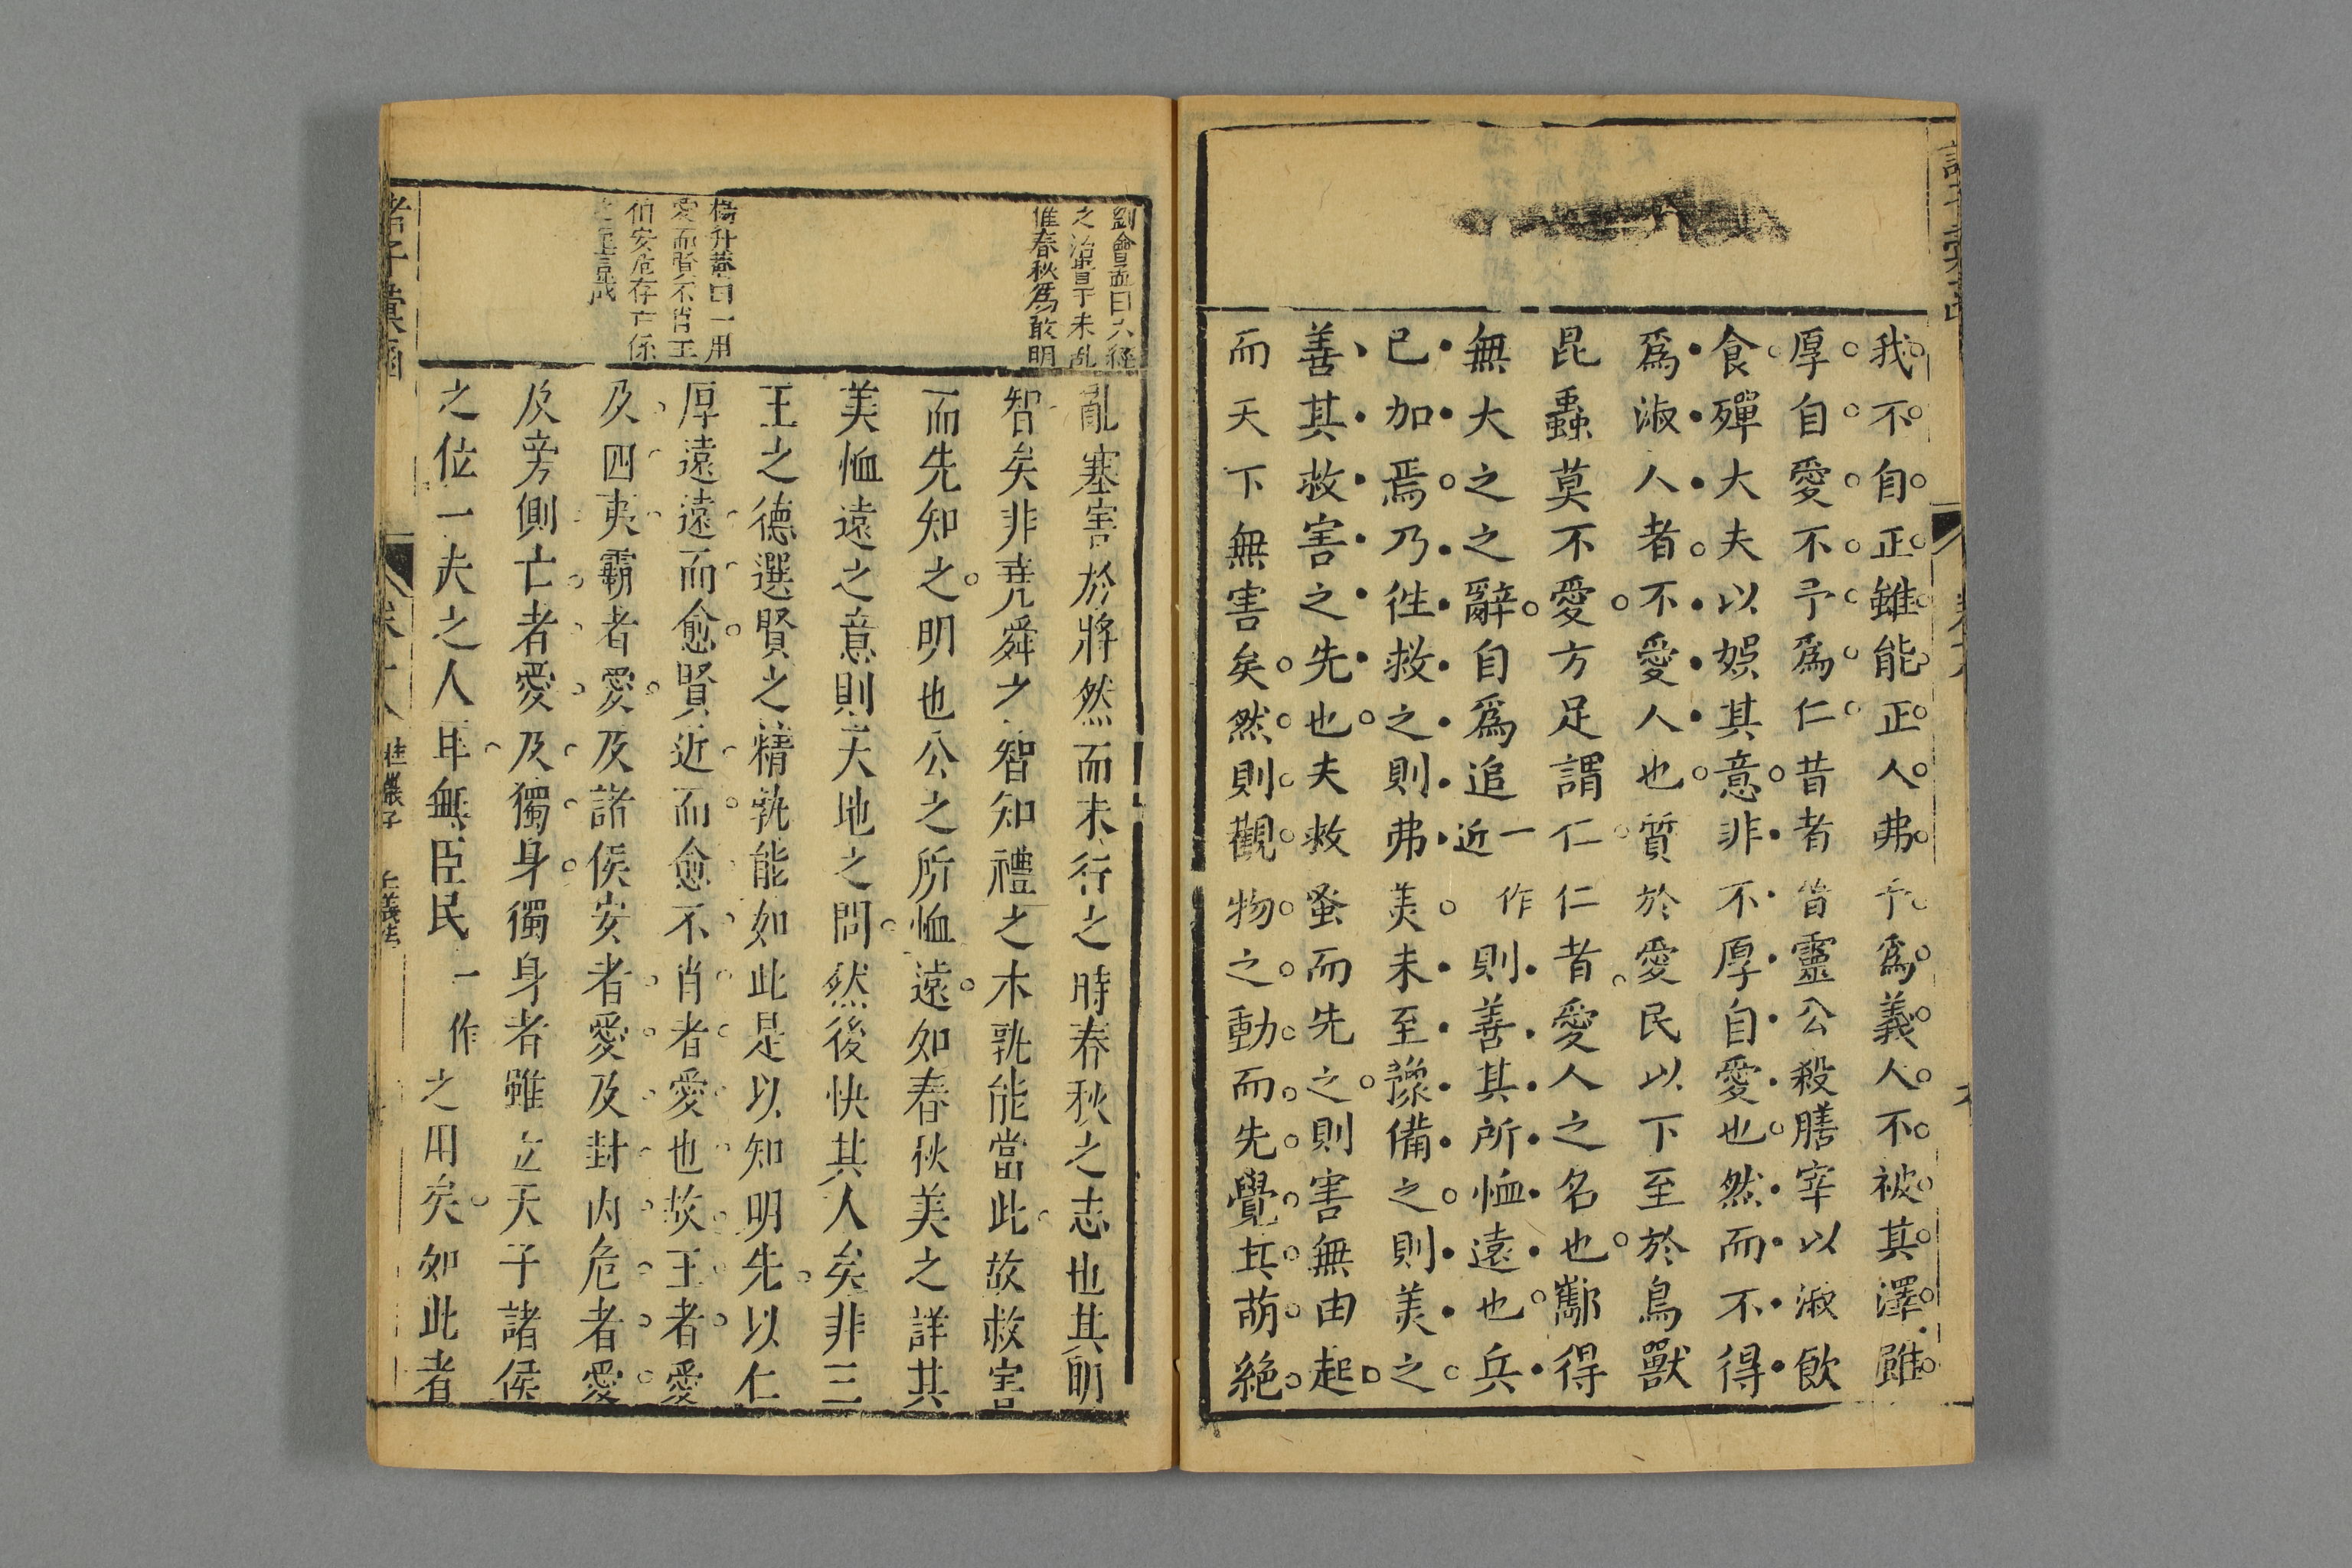 我不自正雖能正人弗予爲義人不被其澤雖
厚自愛不予爲仁昔者晉靈公殺膳宰以淑飲
食殫大夫以娛其意非不厚自愛也然而不得
爲淑人者不愛人也質於愛民以下至於鳥獸
昆蟲莫不愛方足謂仁仁者愛人之名也酅得
無大之之辭自爲追一作近則善其所恤遠也兵
已加焉乃徃救之則弗美未至豫備之則美之
善其救害之先也夫救蚤而先之則害無由起
而天下無害矣然則觀物之動而先覺其萌絶
劉會孟曰六經
之治貴于未亂
惟春秋爲敢明
亂塞害於將然而未行之時春秋之志也其明
智矣非堯舜之智知禮之木孰能當此故救害
而先知之明也公之所恤遠如春秋美之詳其
美恤遠之意則天地之間然後快其人矣非三
王之德選賢之精孰能如此是以知明先以仁
厚遠遠而愈賢近而愈不肖者愛也故王者愛
及四夷霸者愛及諸侯安者愛及封内危者愛
及旁側亡者愛及獨身獨身者雖立天子諸侯
之位一夫之人耳無臣民一作之用矣如此者
楊升菴曰一用
愛而賢不肖王
伯安危存亡係
諸子彙函
卷十八